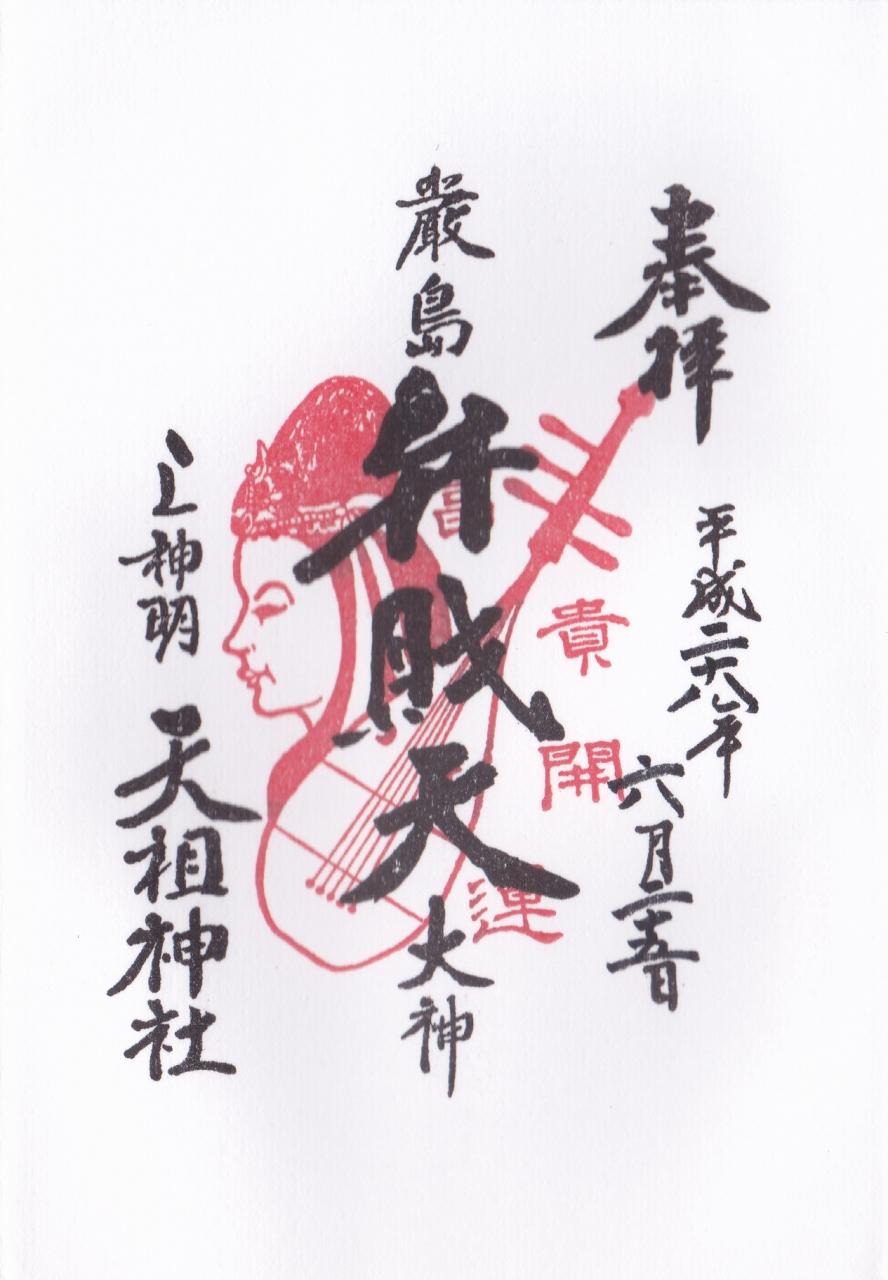 奉拝
平成二十八年
六月二十五日
厳島
弁財天
大神
富
貴
開
運
上神明
天祖神社